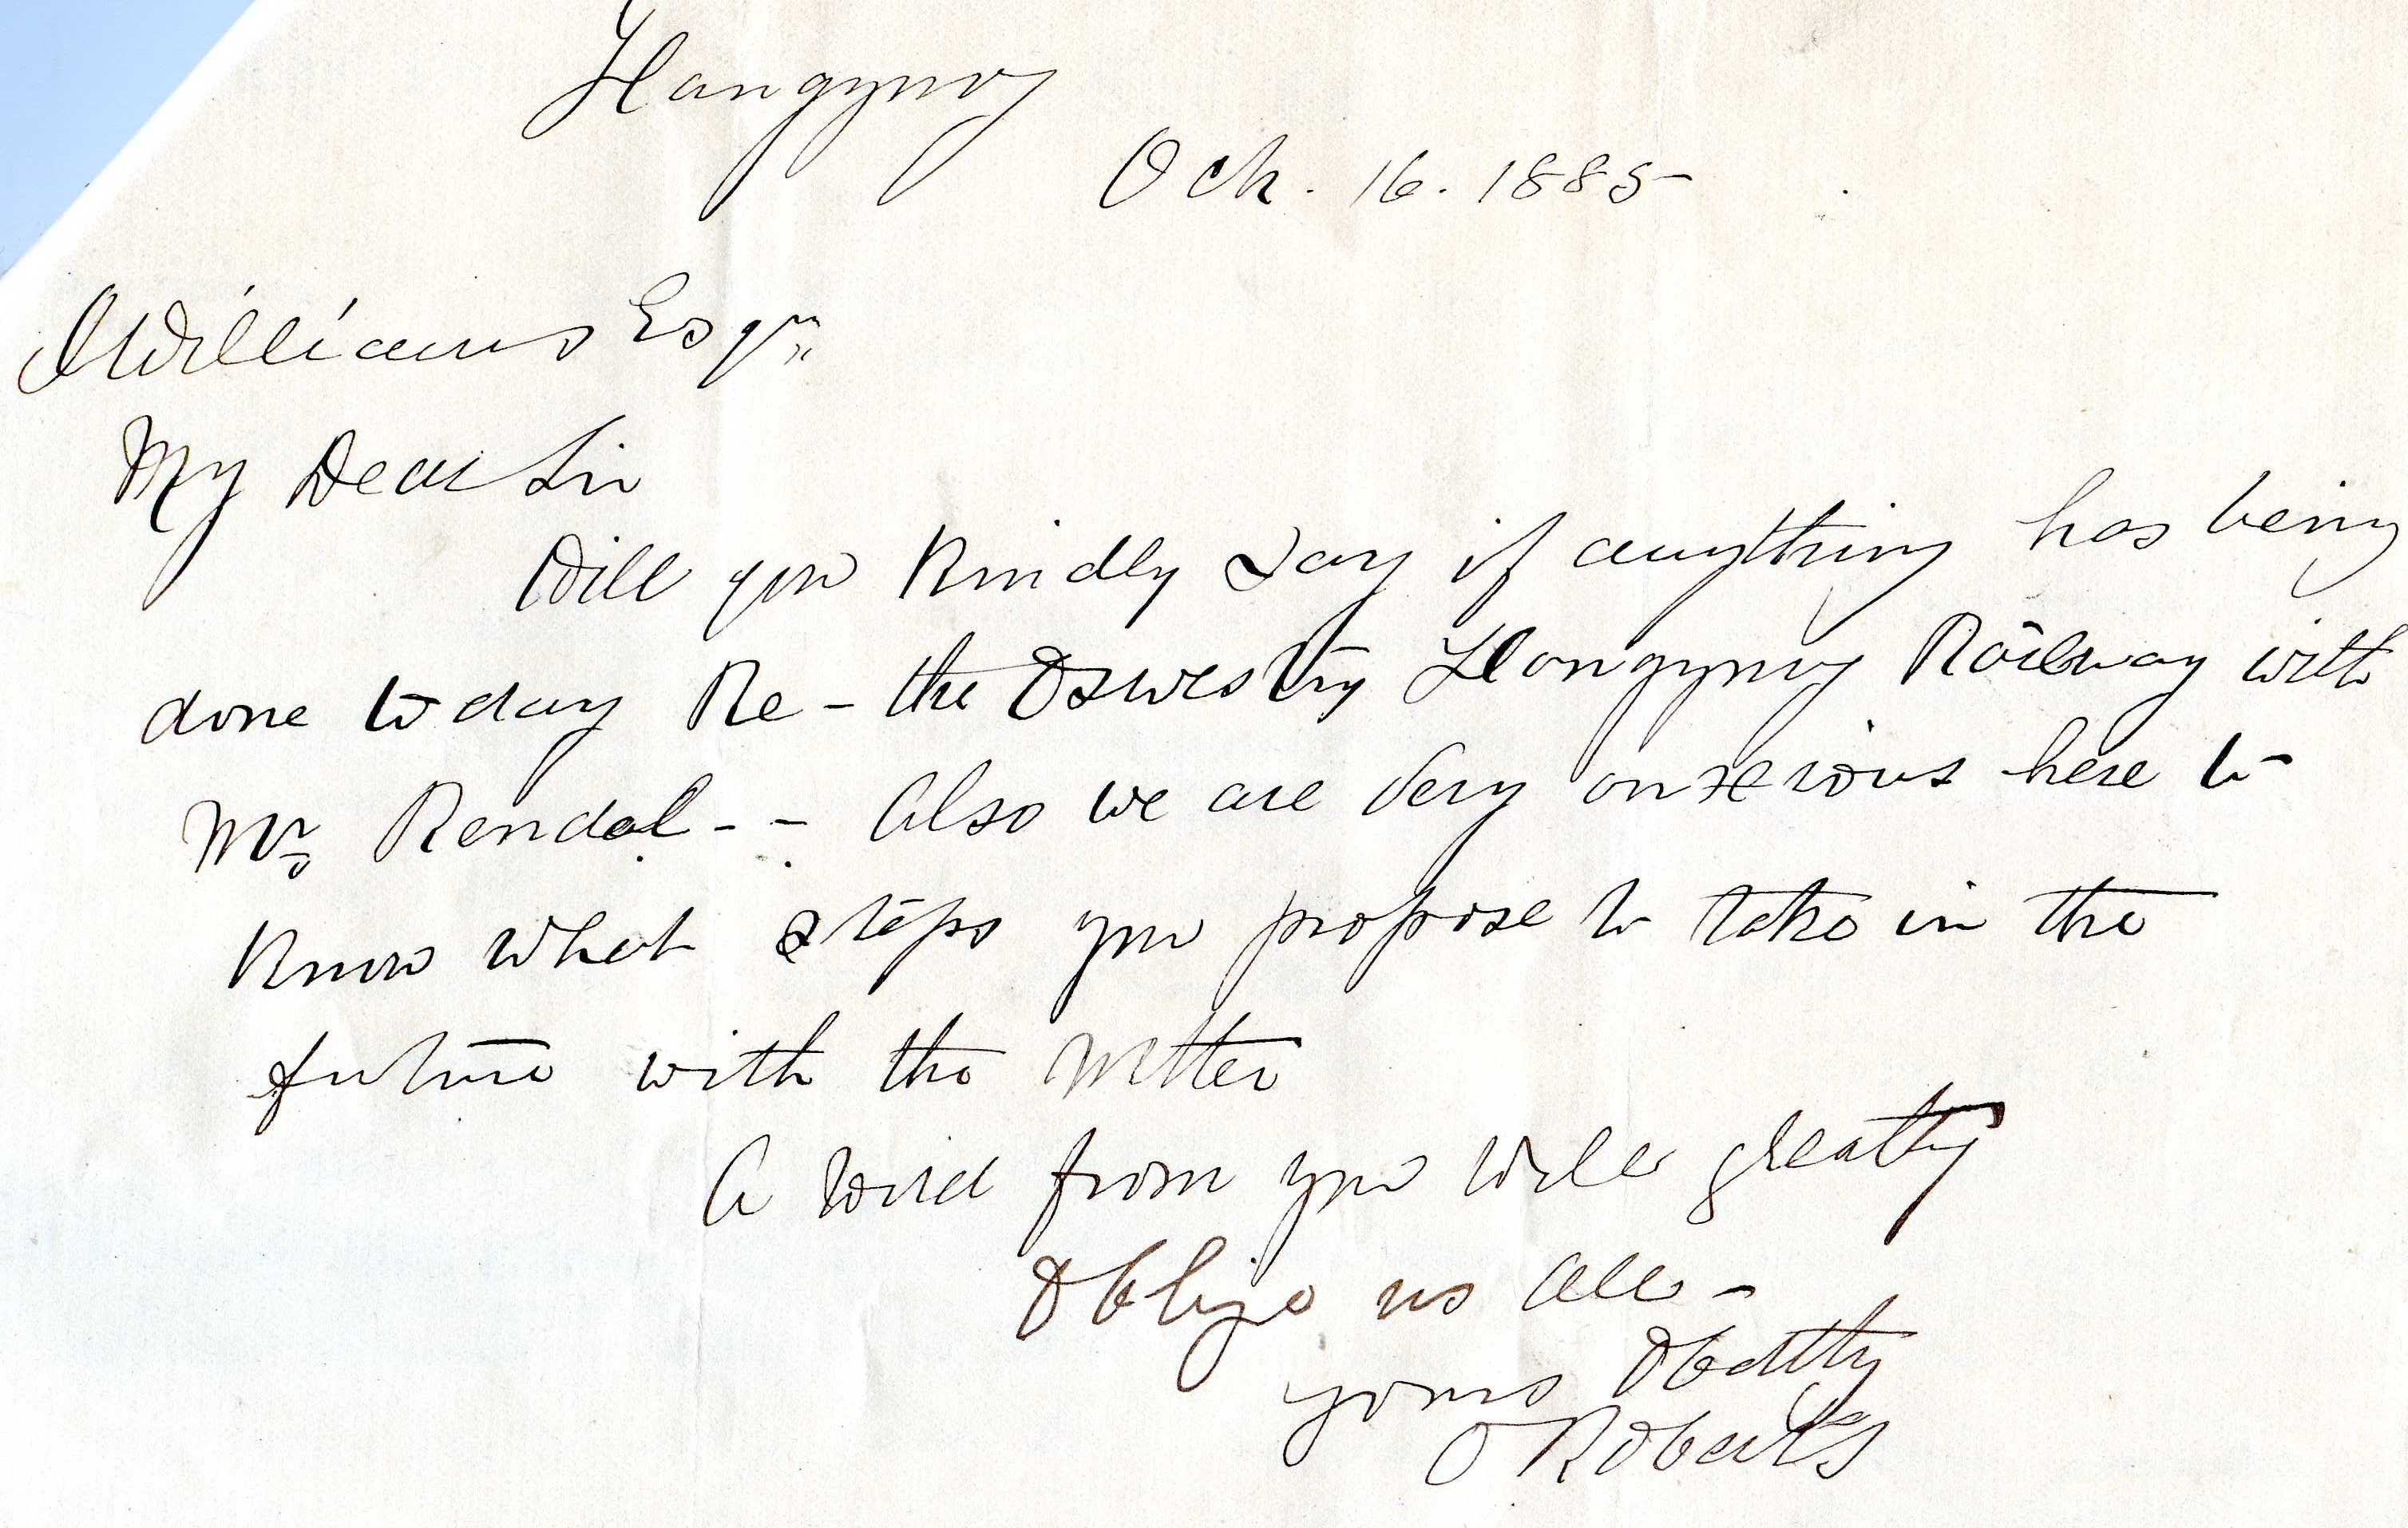 Llangynog
Oct. 16. 1885
Williams Esqr
My Dear Sir
Will you kindly say if anything has being
done to day Re - the Oswestry Llangynog Railway with
Mr Rendal - - Also we are very anxious here to
know what steps you propose to take in the
future with the Matter
A word from you will greatly
Oblige us all -
yours Obedtly
O Roberts